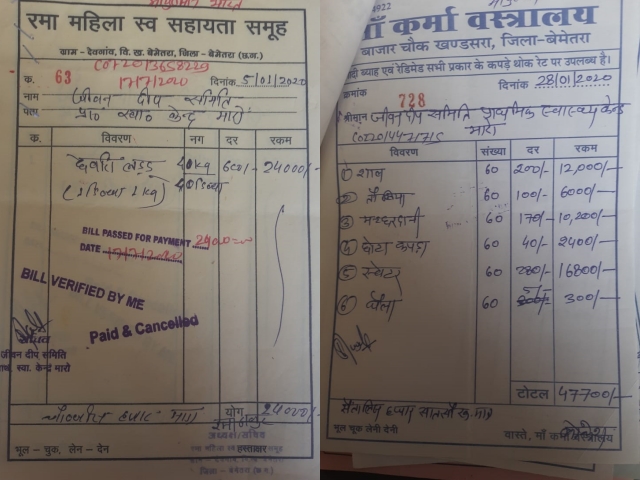 रमा महिला स्व सहायता समूह
ग्राम - देवगांव, वि. ख. बेमेतरा, जिला - बेमेतरा (छ.ग.)
क्र. 63
17/7/2020 दिनांक 5/01/2020
नाम जीवन दीप समिति
पता प्रा० स्वा० केन्द्र मारो
क्र. विवरण नग दर रकम
लड्डू 40kg 600/- 24000/-
40 डिब्बा
BILL PASSED FOR PAYMENT 24000=00
DATE 17/7/2020
BILL VERIFIED BY ME
Paid & Cancelled
सचिव
जीवन दीप समिति
स्वा. केन्द्र मारो
योग 24000/-
चौबीस हजार मात्र
अध्यक्ष/सचिव
रमा महिला स्व सहायता समूह
हस्ताक्षर
भूल - चुक, लेन - देन
जिला - बेमेतरा (छ.ग.)
माँ कर्मा वस्त्रालय
बाजार चौक खण्डसरा, जिला-बेमेतरा
शादी ब्याह एवं रेडिमेड सभी प्रकार के कपड़े थोक रेट पर उपलब्ध है।
क्रमांक 728 दिनांक 28/01/2020
श्रीमान् जीवन दीप समिति प्राथमिक स्वास्थ्य केन्द्र
मारो
विवरण संख्या दर रकम
① शाल 60 200/- 12,000/-
② तौलिया 60 100/- 6000/-
③ मच्छरदानी 60 170/- 10,200/-
④ छोटा कपड़ा 60 40/- 2400/-
⑤ स्वेटर 60 280/- 16800/-
⑥ थैला 60 5/- 300/-
टोटल 47700/-
सैतालिस हजार सात सौ रु. मात्र
भूल चूक लेनी देनी
वास्ते, माँ कर्मा वस्त्रालय